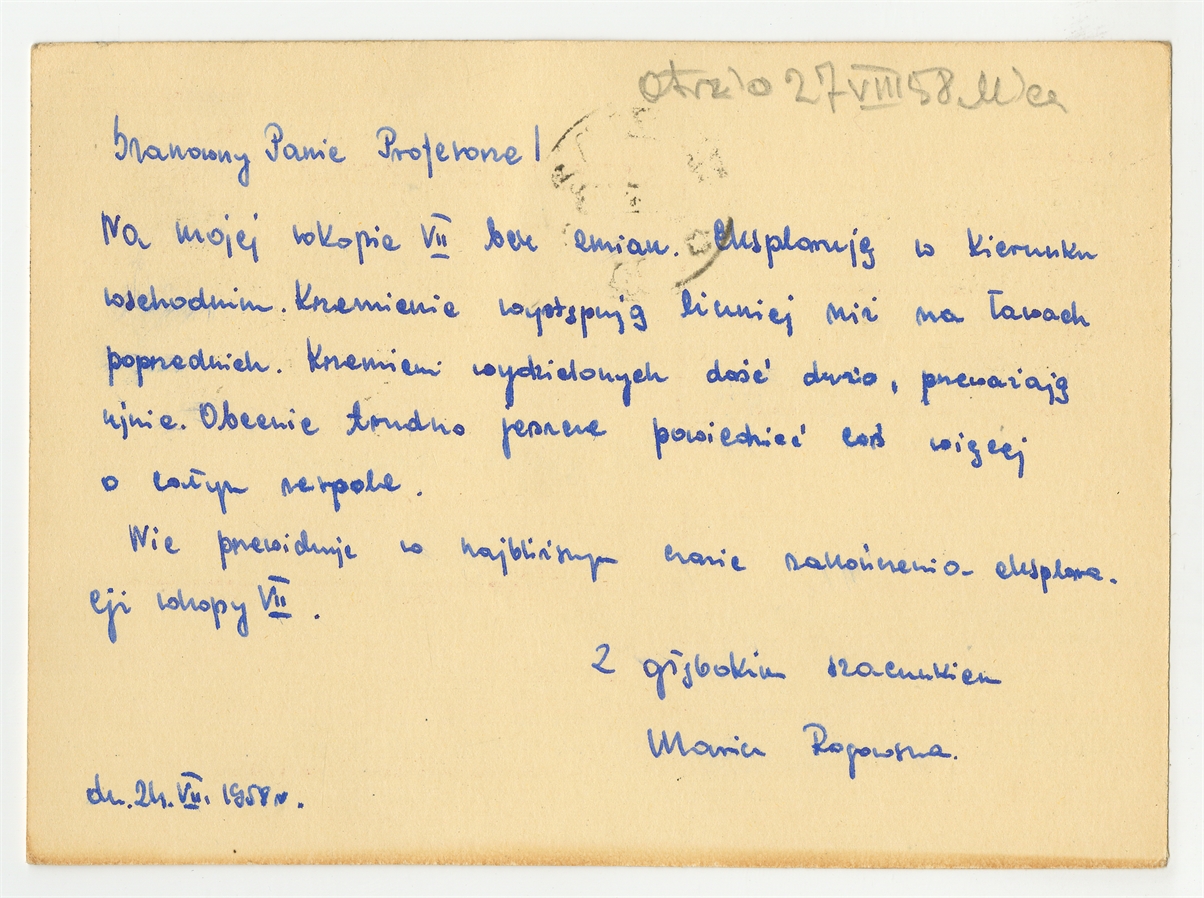 27 VIII 58
Szanowny Panie Profesorze!
Na mojej wkopie VII bez zmian. Eksplorują w kierunku
wschodnim. Krzemienie występują liczniej niż na ławach
poprzednich. Krzemieni wydzielonych dość dużo, przeważają
Obecnie trudno jeszcze powiedzieć coś więcej
o całym zespole.
Nie przewiduję w najbliższym czasie zakończenia eksplora-
cji wkopy VII.
Z głębokim szacunkiem
Maria Rogowska.
1958 r.